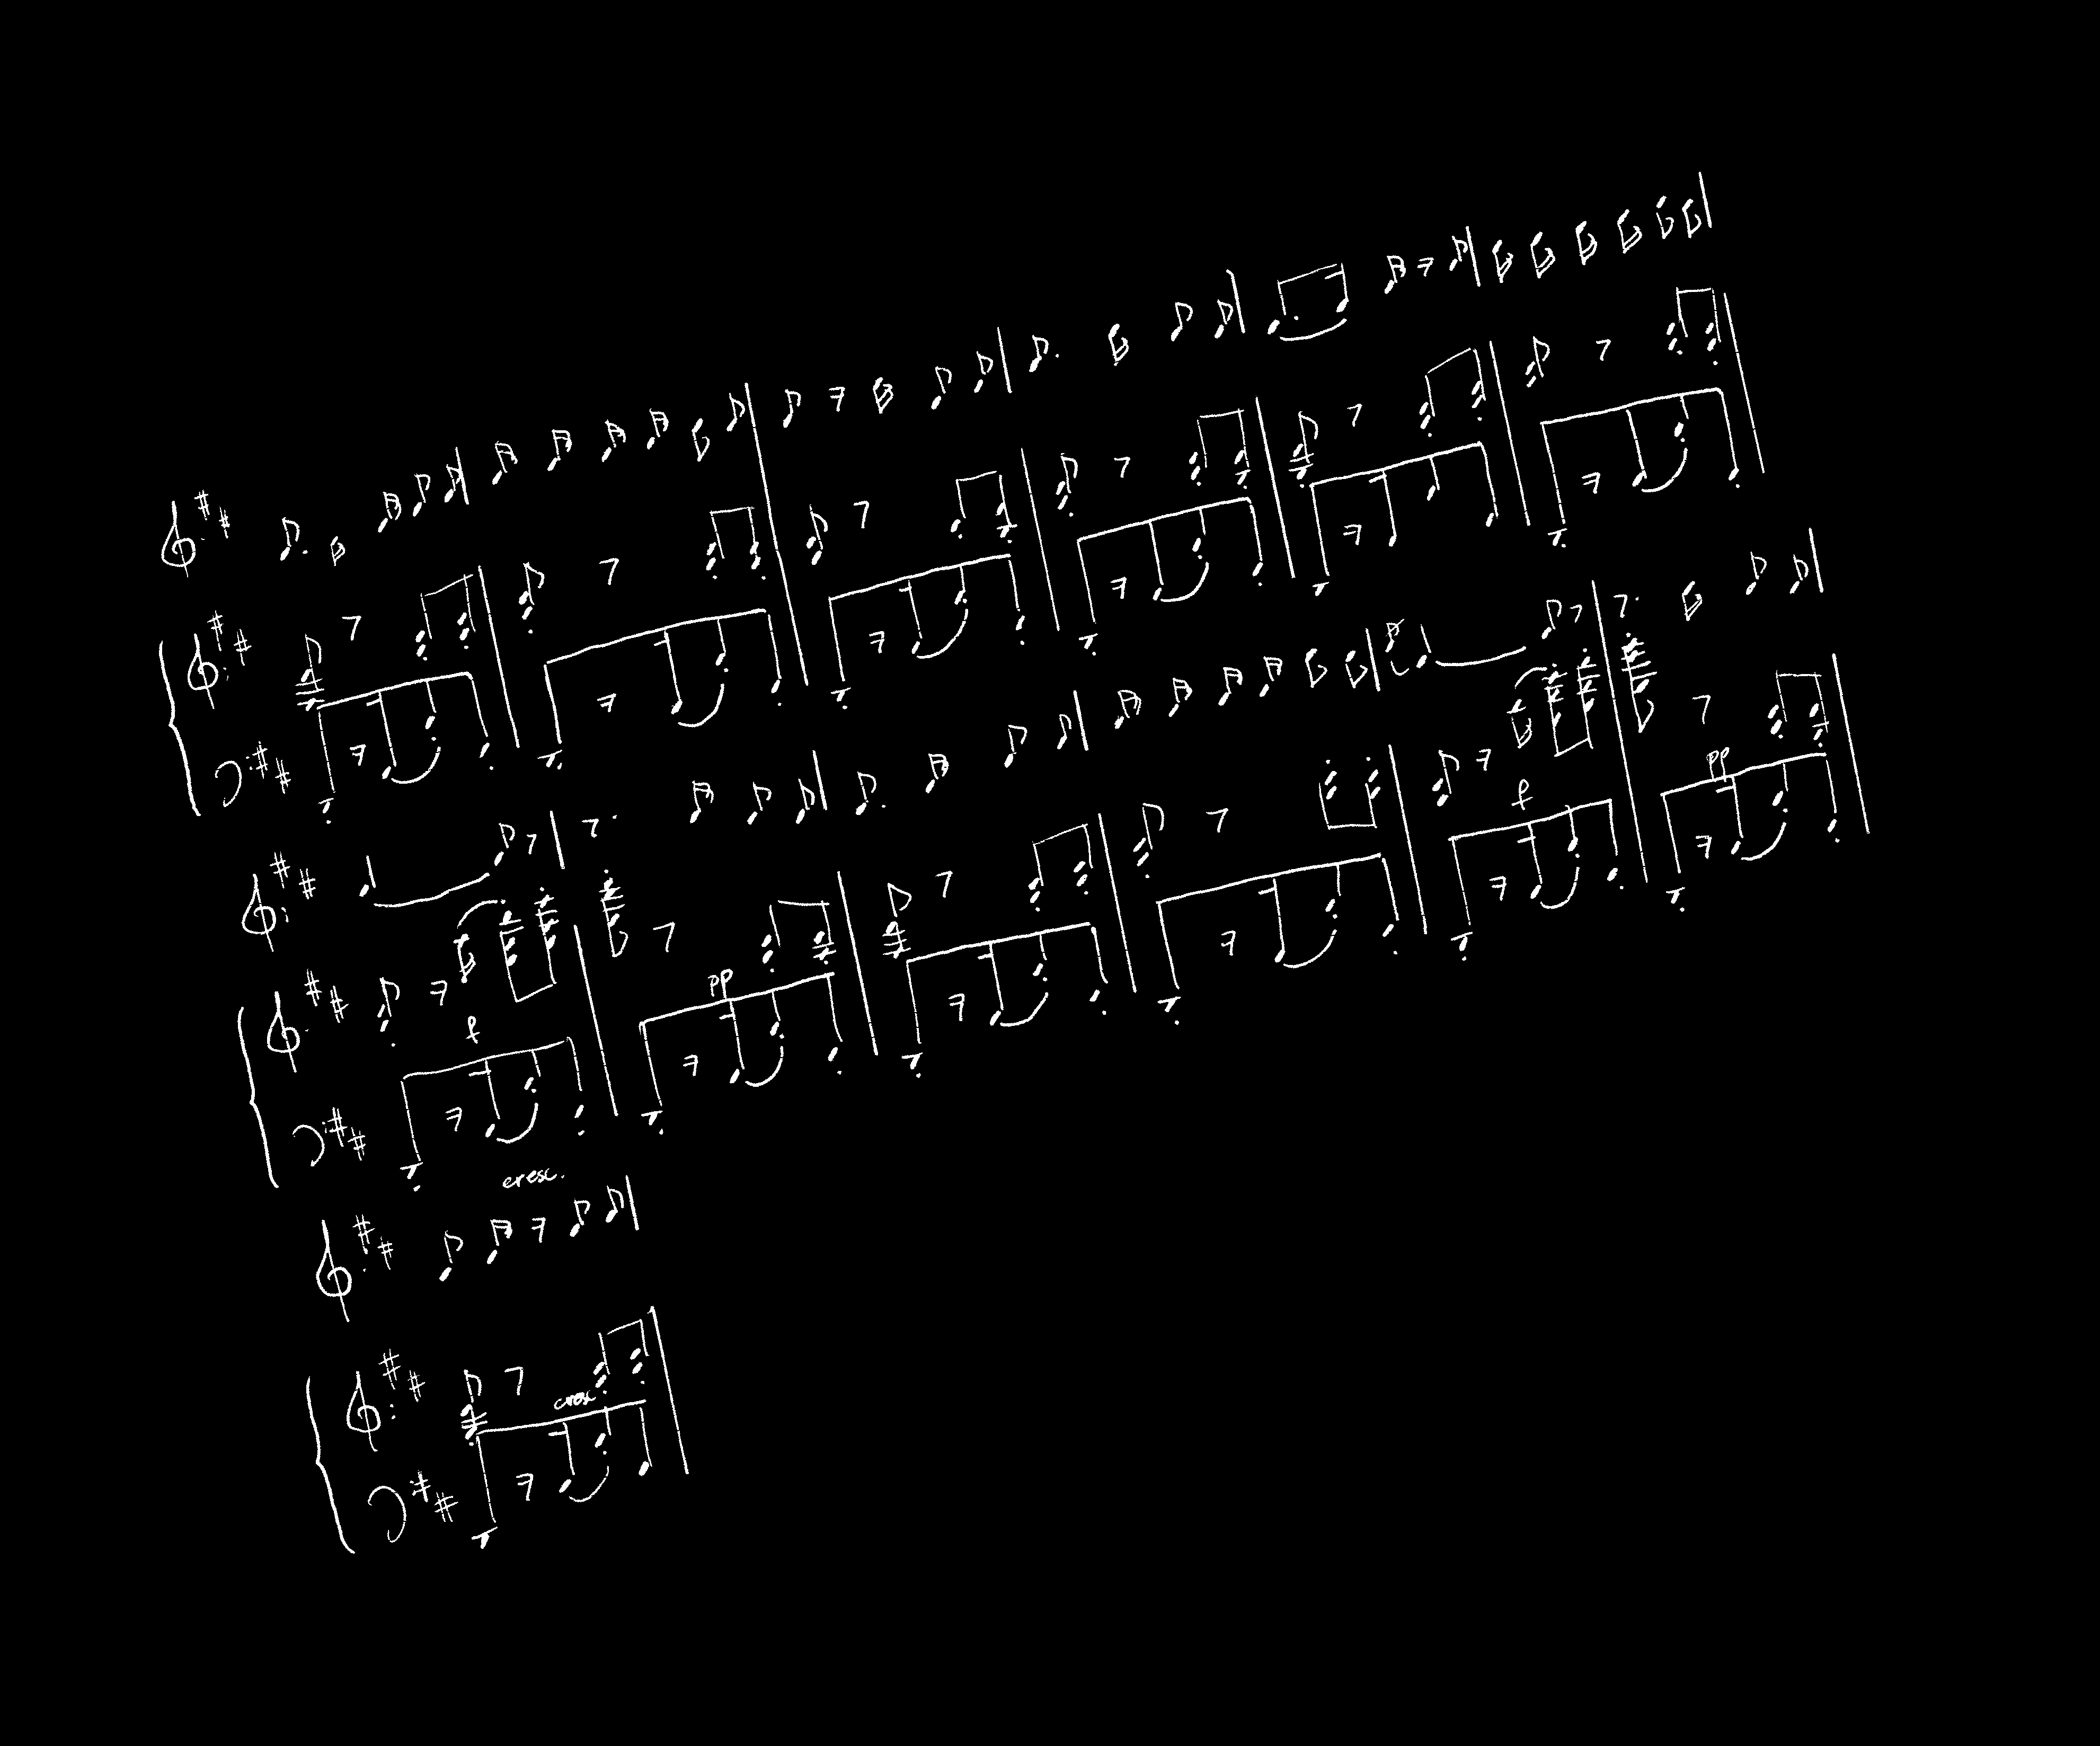 pp
f
pp
f
cresc.
cresc